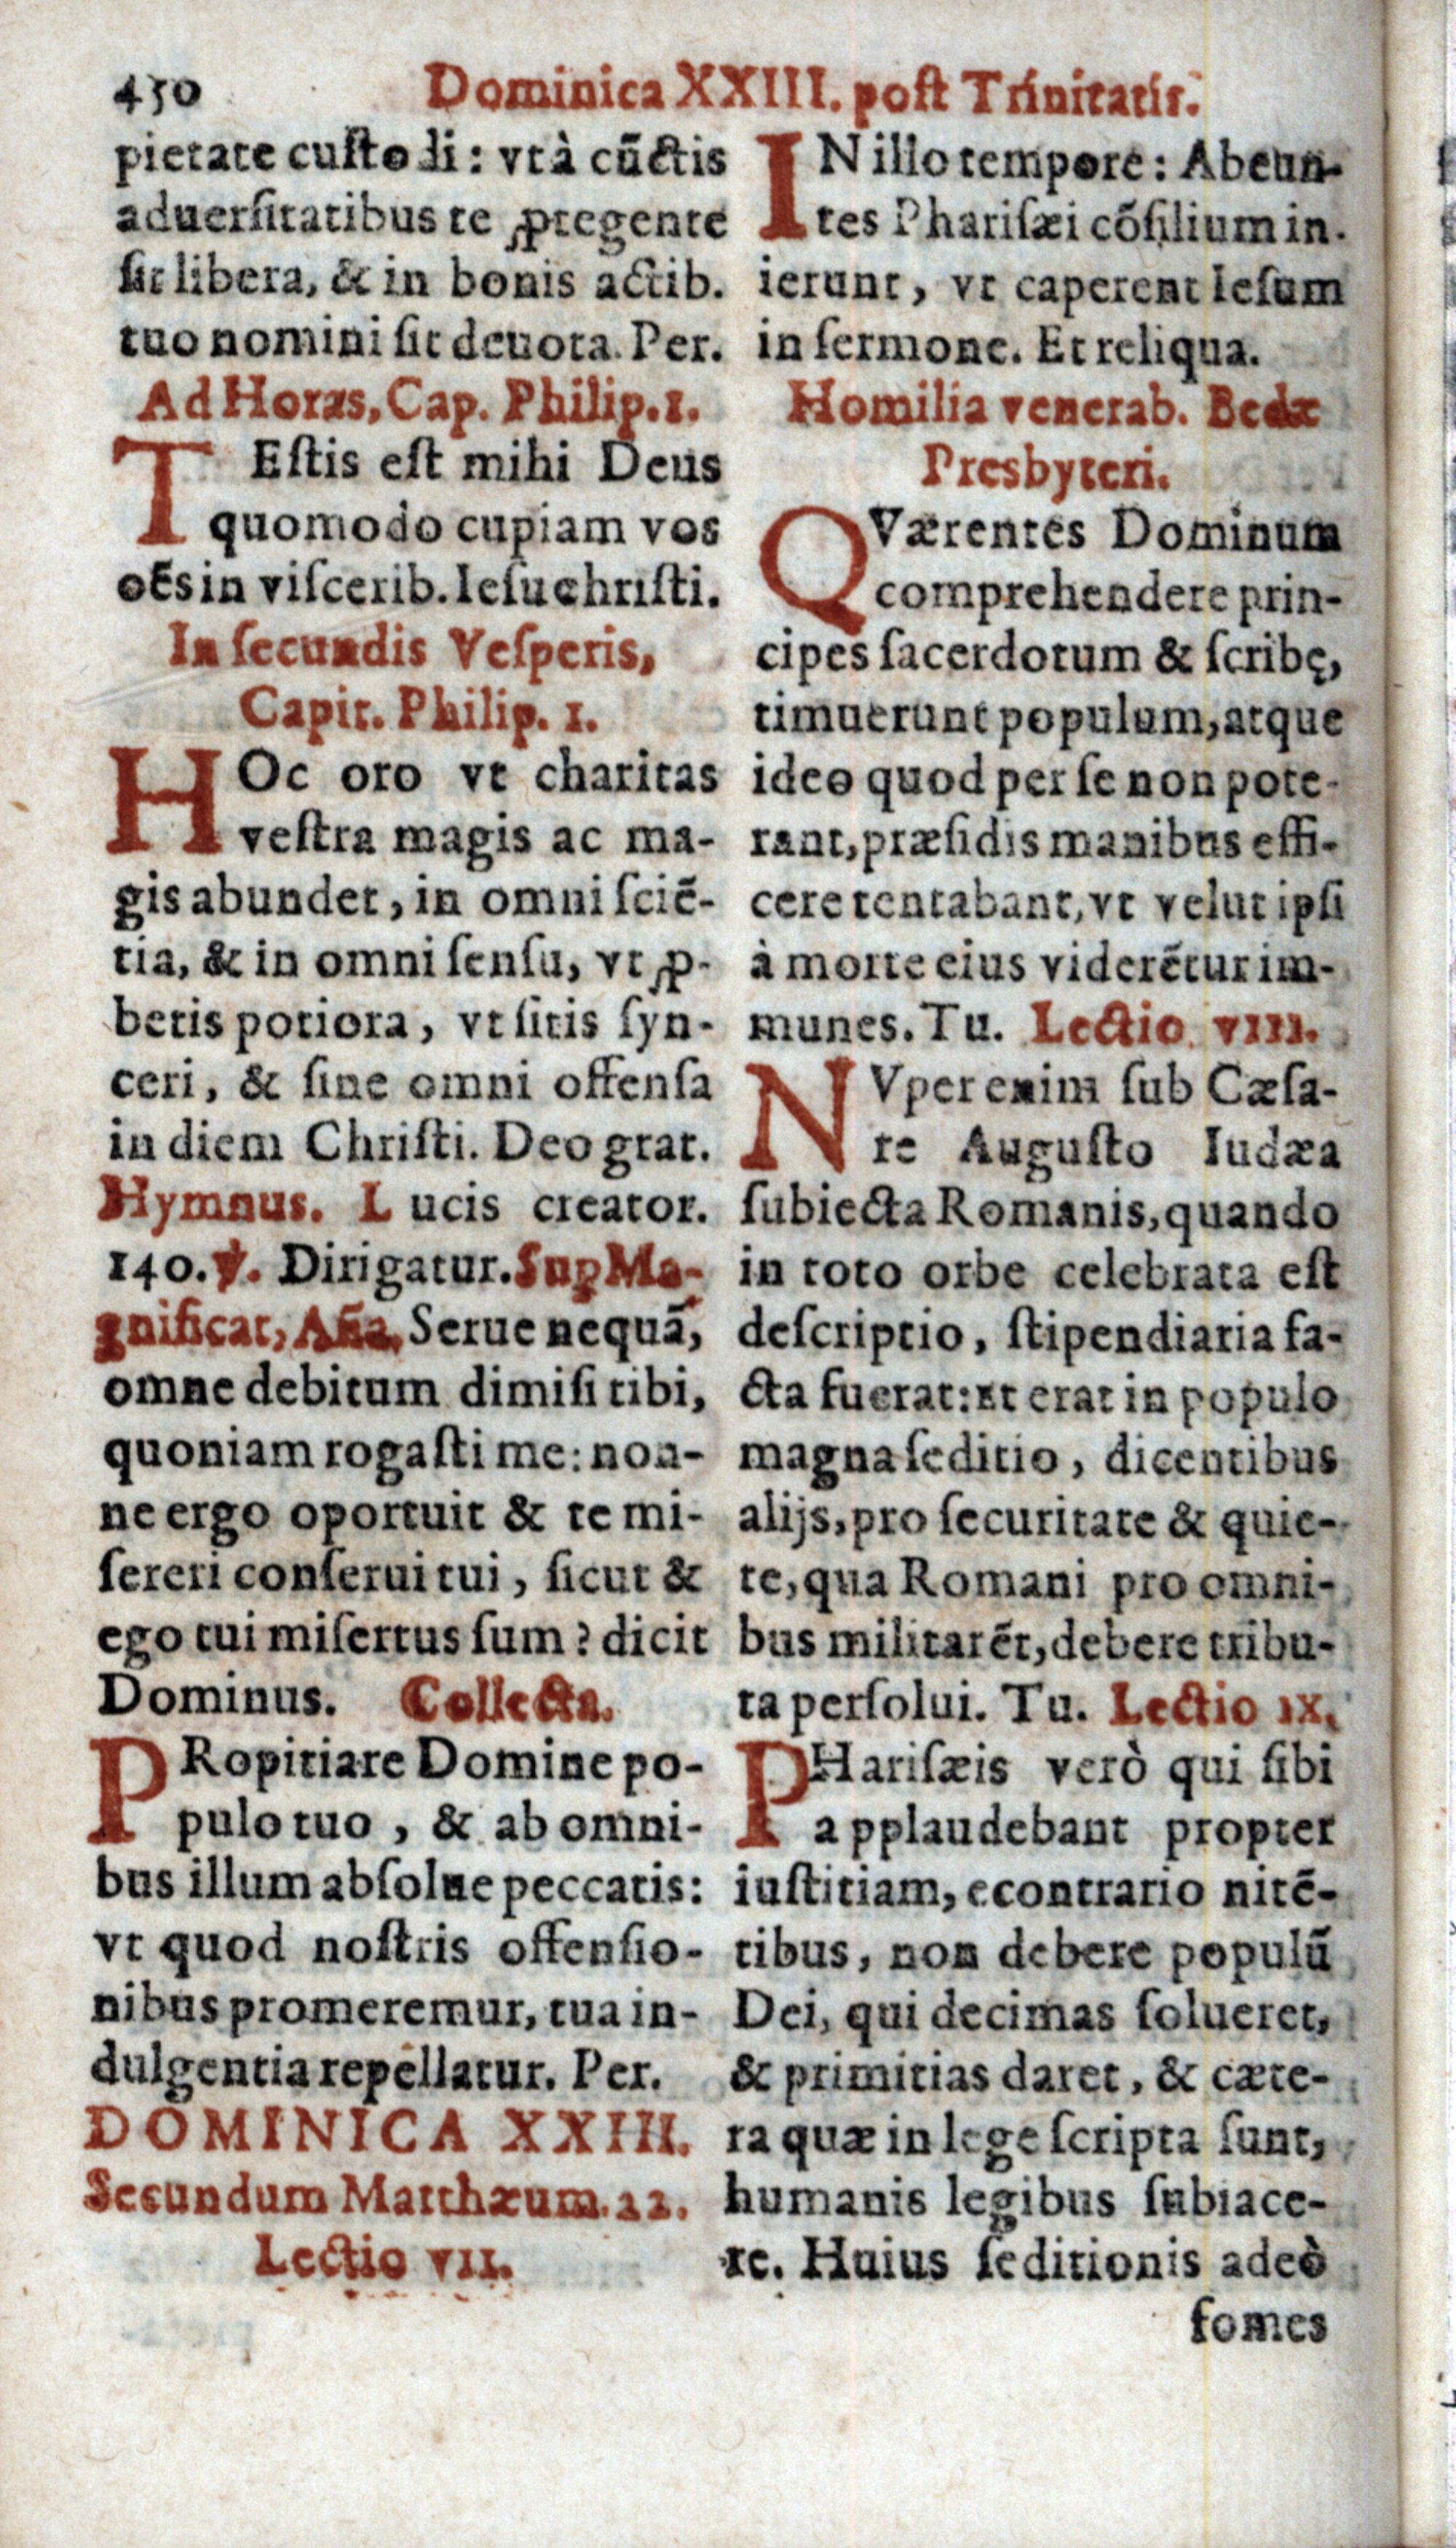 450 Dominica XXIII. poſt Trinitatis.
pietate cuſtodi: vt à cūctis
aduerſitatibus te ꝓtegente
ſit libera, & in bonis actib.
tuo nomini ſit deuota. Per.
Ad Horas, Cap. Philip. 1.
TEſtis eſt mihi Deus
quomodo cupiam vos
oēs in viſcerib. Ieſu chriſti.
In ſecundis Veſperis,
Capit. Philip. 1.
HOc oro vt charitas
veſtra magis ac ma-
gis abundet, in omni ſciē-
tia, & in omni ſenſu, vt ꝓ-
betis potiora, vt ſitis ſyn-
ceri, & ſine omni offenſa
in diem Chriſti. Deo grat.
Hymnus. Lucis creator.
140. ℣. Dirigatur. Sup Ma-
gnificat, Aña. Serue nequā,
omne debitum dimiſi tibi,
quoniam rogaſti me: non-
ne ergo oportuit & te mi-
ſereri conſerui tui, ſicut &
ego tui miſertus ſum? dicit
Dominus. Collecta.
PRopitiare Domine po-
pulo tuo, & ab omni-
bus illum abſolue peccatis:
vt quod noſtris offenſio-
nibus promeremur, tua in-
dulgentia repellatur. Per.
DOMINICA XXIII.
Secundum Matthæum. 22.
Lectio VII.
IN illo tempore: Abeun-
tes Phariſæi cōſilium in-
ierunt, vt caperent Ieſum
in ſermone. Et reliqua.
Homilia venerab. Bedæ
Presbyteri.
QVærentes Dominum
comprehendere prin-
cipes ſacerdotum & ſcribę,
timuerunt populum, atque
ideo quod per ſe non pote-
rant, præſidis manibus effi-
cere tentabant, vt velut ipſi
à morte eius viderētur im-
munes. Tu. Lectio VIII.
NVper enim ſub Cæſa-
re Auguſto Iudæa
ſubiecta Romanis, quando
in toto orbe celebrata eſt
deſcriptio, ſtipendiaria fa-
cta fuerat: Et erat in populo
magna ſeditio, dicentibus
alijs, pro ſecuritate & quie-
te, qua Romani pro omni-
bus militarēt, debere tribu-
ta perſolui. Tu. Lectio IX.
PHariſæis verò qui ſibi
applaudebant propter
iuſtitiam, econtrario nitē-
tibus, non debere populū
Dei, qui decimas ſolueret,
& primitias daret, & cæte-
ra quæ in lege ſcripta ſunt,
humanis legibus ſubiace-
re. Huius ſeditionis adeò
fomes